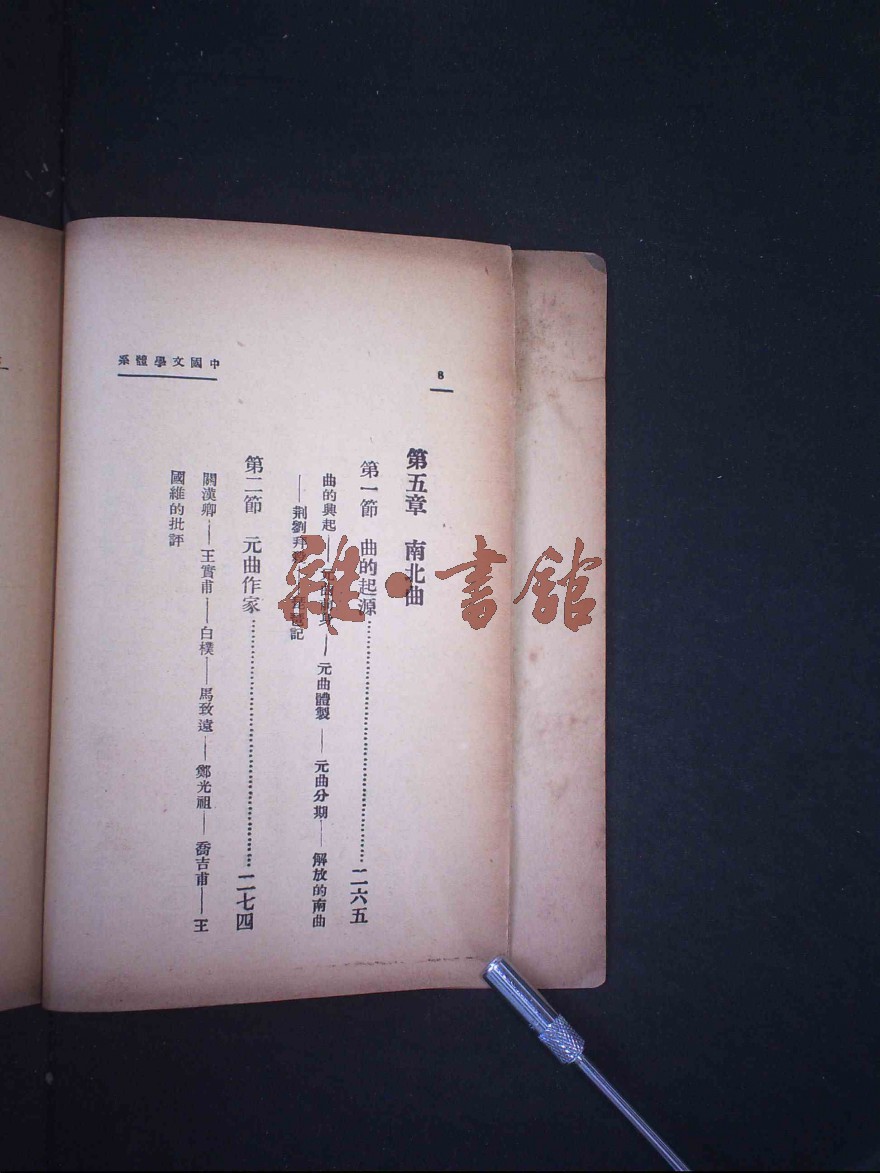 中國文學體系
8
第五章 南北曲
第一節 曲的起源⋯⋯⋯⋯⋯⋯⋯⋯⋯⋯二六五
曲的興起——元曲——元曲體製——元曲分期——解放的南曲
——荊劉拜記
第二節 元曲作家⋯⋯⋯⋯⋯⋯⋯⋯⋯⋯二七四
關漢卿——王實甫——白樸——馬致遠——鄭光祖——喬吉甫——王
國維的批評
雜·書館